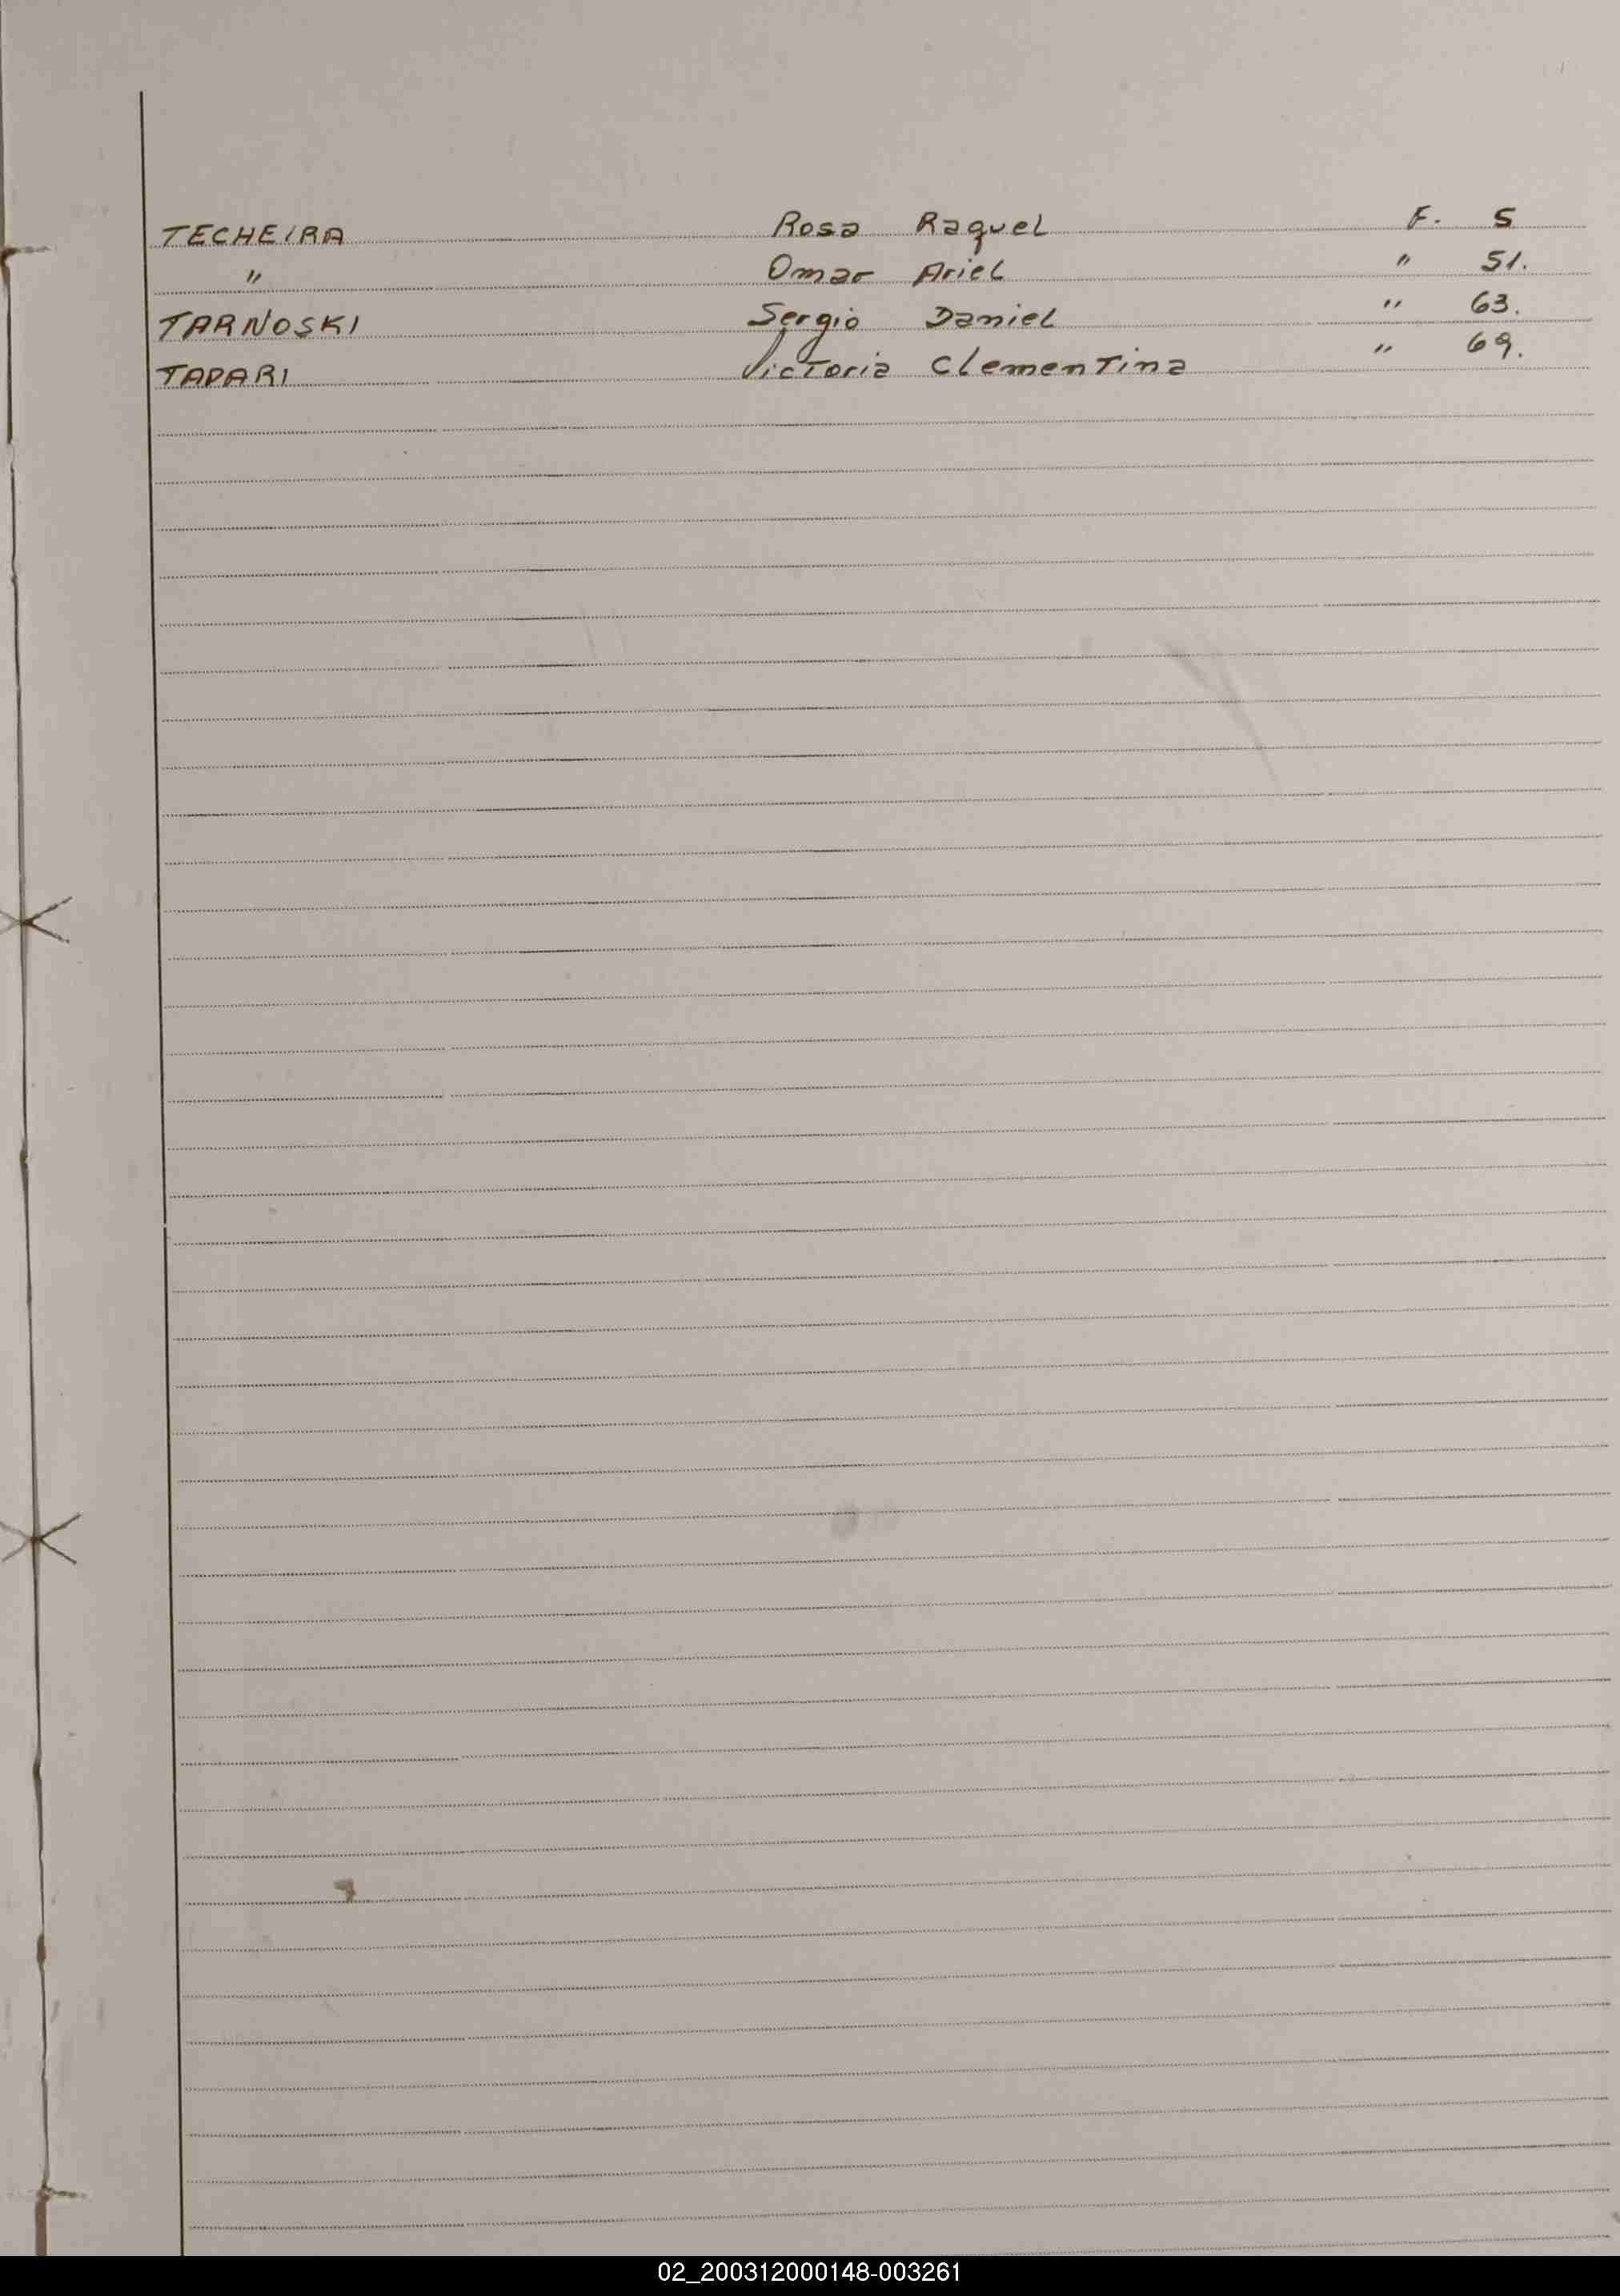 TECHEIRA Rosa Raquel F. 5
" Omar Ariel " 51.
TARNOSKI Sergio Daniel " 63.
TAPARI Victoria Clementina " 69.
02_200312000148-003261